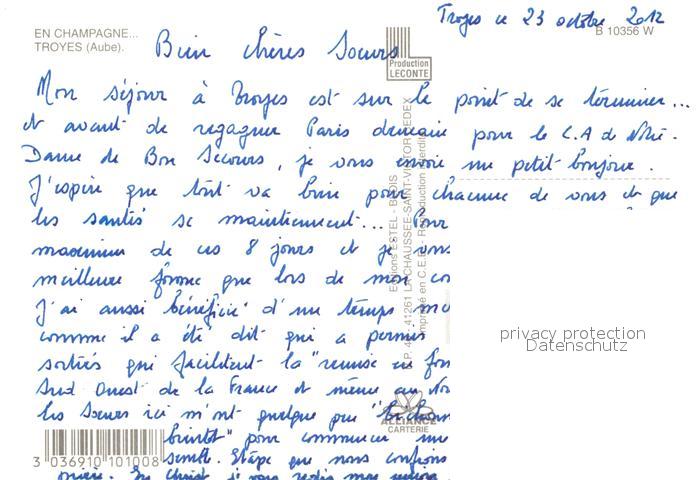 Troyes ce 23 octobre 2012
EN CHAMPAGNE...
TROYES (Aube).
B 10356 W
Bien Chères Soeurs
Production
LECONTE
Mon séjour à Troyes est sur le point de se terminer...
et avant de regagner Paris demain pour le C.A de Notre.
Dame de Bon Secours, je vous envoie un petit bonjour.
J'espère que tout va bien pour chacune de vous et que
les santés se maintiennent... Pour
maximum de ces 8 jours et je vous
meilleure forme que lors de mon
J'ai aussi bénéficié d'un temps
comme il a été dit qui a permis
sorties qui facilitent la "remise en
Sud Ouest de la France et même au
les Soeurs ici m'ont quelque peu
bientôt" pour commencer une
semble. Etape que nous confions
prière. En Christ je vous redis mon
Editions ESTEL - BLOIS
41261 LA CHAUSSEE-SAINT-VICTOR CEDEX
Imprimé en C.E.E. - Reproduction interdite
privacy protection
Datenschutz
ALLIANCE
CARTERIE
3 036910 101008